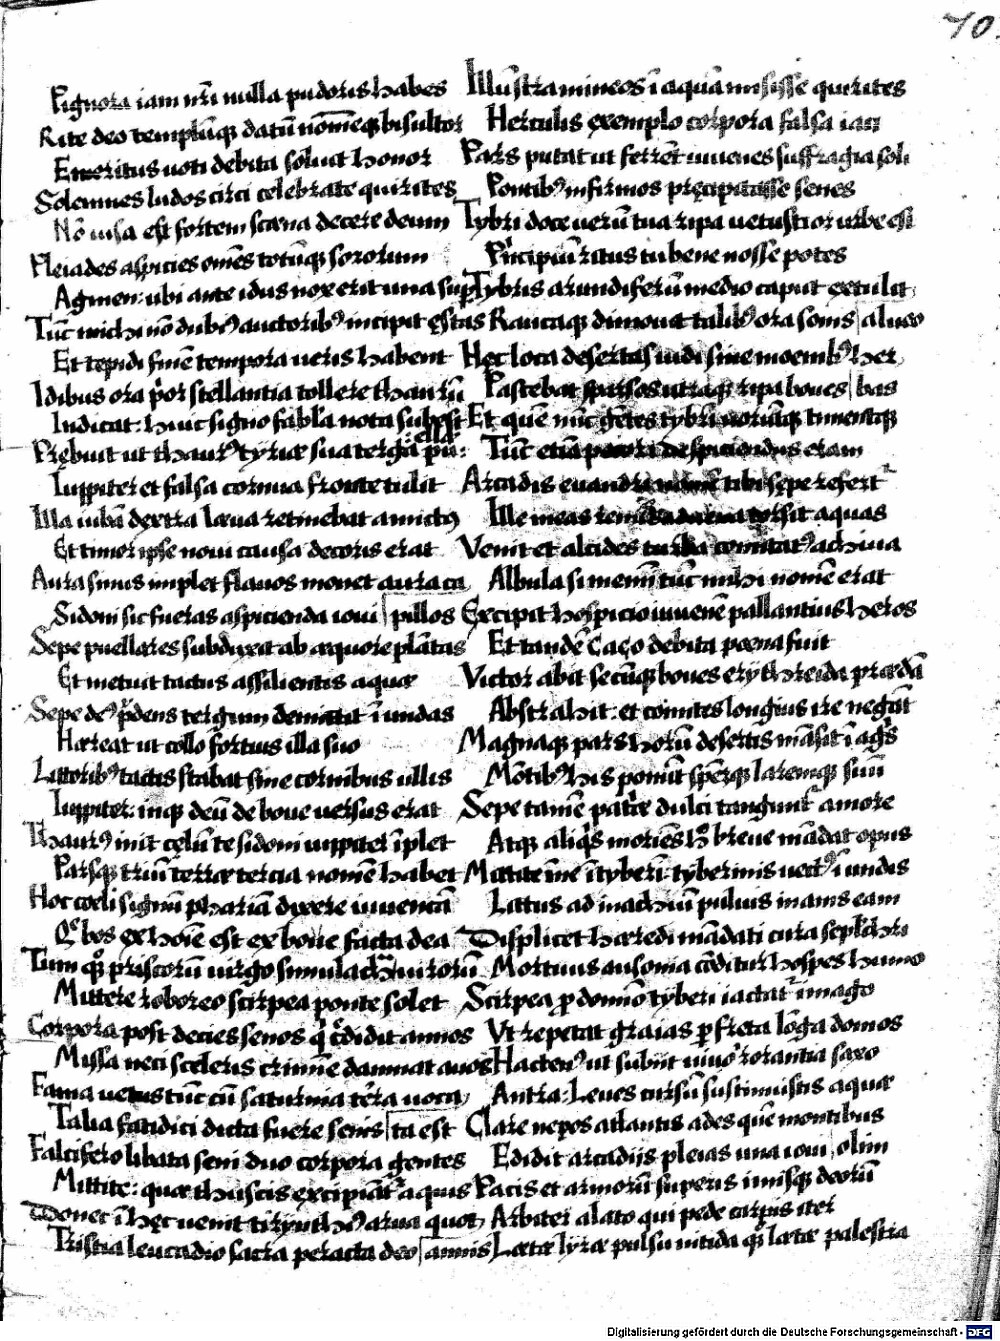 70.
Pignora iam nr̄i nulla pudoris habes
Rite deo templūq; datū nōmēq; bisultor
Emeritus uoti debita soluit honor
Solemnes ludos circi celebrate quirites
Nō uisa est fortem scæna decere deum
Pleiades aspicies omēs totūq; sororum
Agmen: ubi ante idus nox erit una sup̱
Tūc michi nō dubiꝰ auctoribꝰ incipit ęstas
Et tepidi finē tempora ueris habent
Idibus ora prior stellantia tollere thaurū
Indicat: huic signo fabl̄a nota subest
Prębuit ut thaurꝰ tyriæ sua terga puellæ:
Iuppiter et falsa cornua fronte tulit
Illa iubā dextra læua retinebat amictꝰ
Et timor ipse noui causa decoris erat
Aura sinus implet flauos mouet aura ca
Sidoni sic fueras aspicienda ioui | pillos
Sepe puellares subduxit ab æquore plātas
Et metuit tactus assilientis aquæ
Sepe deꝰ prudens tergum demittit ī undas
Hæreat ut collo fortius illa suo
Littoribꝰ tactis stabat sine cornibus ullis
Iuppiter: inq; deū de boue uersus erat
Thaurꝰ init cęlū te sidoni iuppiter īplet
Parsq; triū terræ tercia nomē habet
Hoc cœli signū phariā dixere iuuencā
Qe bos ex hoīe est ex boue facta dea
Tum qꝫ priscorū uirgo simulachra uirorū
Mittere roboreo scirpea ponte solet
Corpora post decies senos q̄ credidit annos
Missa neci sceleris crimine damnat auos
Fama uetus tūc cū saturnia terra uoca
Talia fatidici dicta fuere senis | ta est
Falcifero libata seni duo corpora gentes
Mittite: quæ thuscis excipiātur aquis
Donec ī hęc uenit tirynthiꝰ arua quot
Tristia leucadio sacra peracta deo | annis
Illū stramineos ī aquā misisse quirites
Herculis exemplo corpora falsa iaci
Pars putat ut ferrēt iuuenes suffragia soli
Pontibꝰ infirmos pręcipitasse senes
Tybri doce uerū tua ripa uetustior urbe est
Principiū ritus tu bene nosse potes
Tybris arundiferū medio caput extulit
Raucaq; dimouit talibꝰ ora sonis | alueo
Hec loca desertas uidi sine moenibꝰ her
Pastebat sparsos utraq; ripa boues | bas
Et quē nūc gētes tybri norūtq; timentq;
Tūc etiā pecori despiciendus eram
Arcadis euandri nomē tibi sępe refert
Ille meas remis aduena torsit aquas
Venit et alcides turba comitatꝰ achiua
Albula si memini tūc mihi nomē erat
Excipit hospicio iuuenē pallantius heros
Et tandē Caço debita poena fuit
Victor abit secūq; boues erythreida prædā
Abstrahit: et comites longius ire negāt
Magnaq; pars horū desertis māsit ī agris
Mōtibꝰ his ponūt spēq; laremq; suū
Sepe tamē patriæ dulci tangunt amore
Atq; aliqs moriēs h̊ breue mādat opus
Mittite me ī tyberī: tyberinis uectꝰ ī undis
Littus ad inachiū puluis inanis eam
Displicet hæredi mādati cura sepulchri
Mortuus ausonia cōditur hospes humo
Scirpea p domīo tyberi iactatur imago
Vt repetat graias p freta lōga domos
Hactenꝰ ut subiit uiuo rorantia saxo
Antra: Leues cursū sustinuistis aquæ
Clare nepos atlantis ades quē montibus
Edidit arcadiis pleias una ioui | olim
Pacis et armorū superis imisq; deorū
Arbiter alato qui pede carpis iter
Lætæ lyræ pulsu nitida qꝫ lætæ palestra
Digitalisierung gefördert durch die Deutsche Forschungsgemeinschaft - DFG